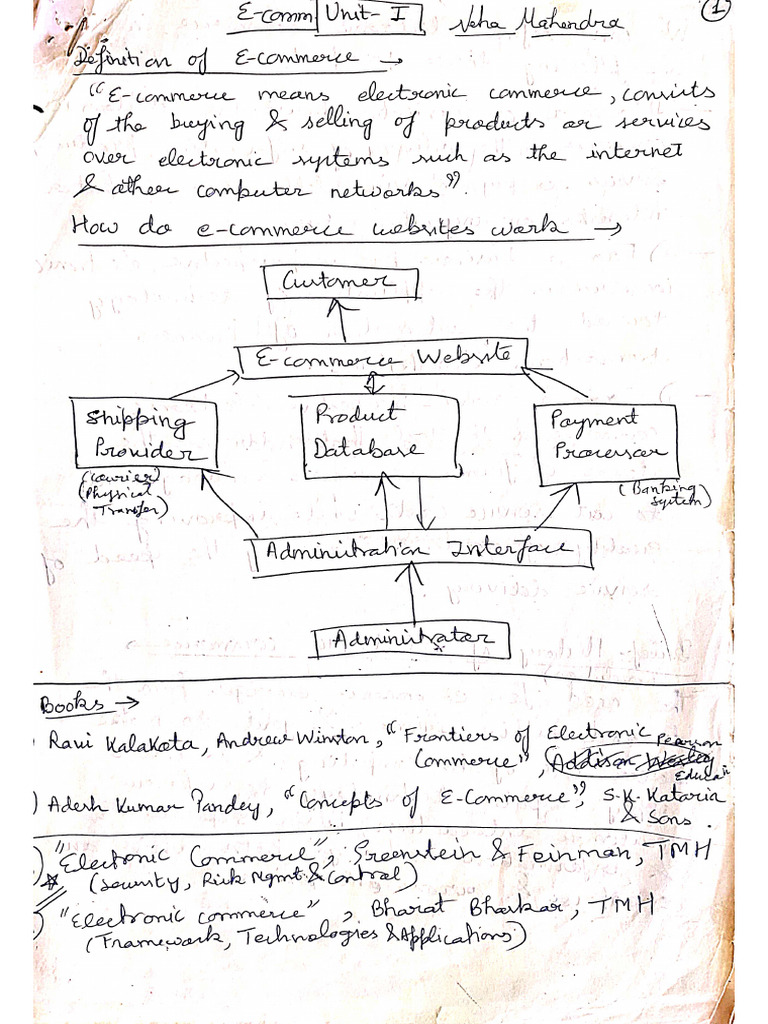 E-comm Unit-I Neha Mahendra 1
Definition of E-commerce →
"E-commerce means electronic commerce, consists
of the buying & selling of products or services
over electronic systems such as the internet
& other computer networks".
How do e-commerce websites work →
Customer
E-commerce Website
Shipping
Provider
(Courier)
(Physical
Transfer)
Product
Database
Payment
Processor
(Banking
System)
Administration Interface
Administrator
Books →
Ravi Kalakota, Andrew Winston, "Frontiers of Electronic
Commerce", Addison Wesley Pearson
Educati
) Adesh Kumar Pandey, "Concepts of E-Commerce", S.K. Kataria
& Sons.
) "Electronic Commerce", Greenstein & Feinman, TMH
(Security, Risk Mgmt & Control)
) "Electronic commerce", Bharat Bhaskar, TMH
(Framework, Technologies & Applications)